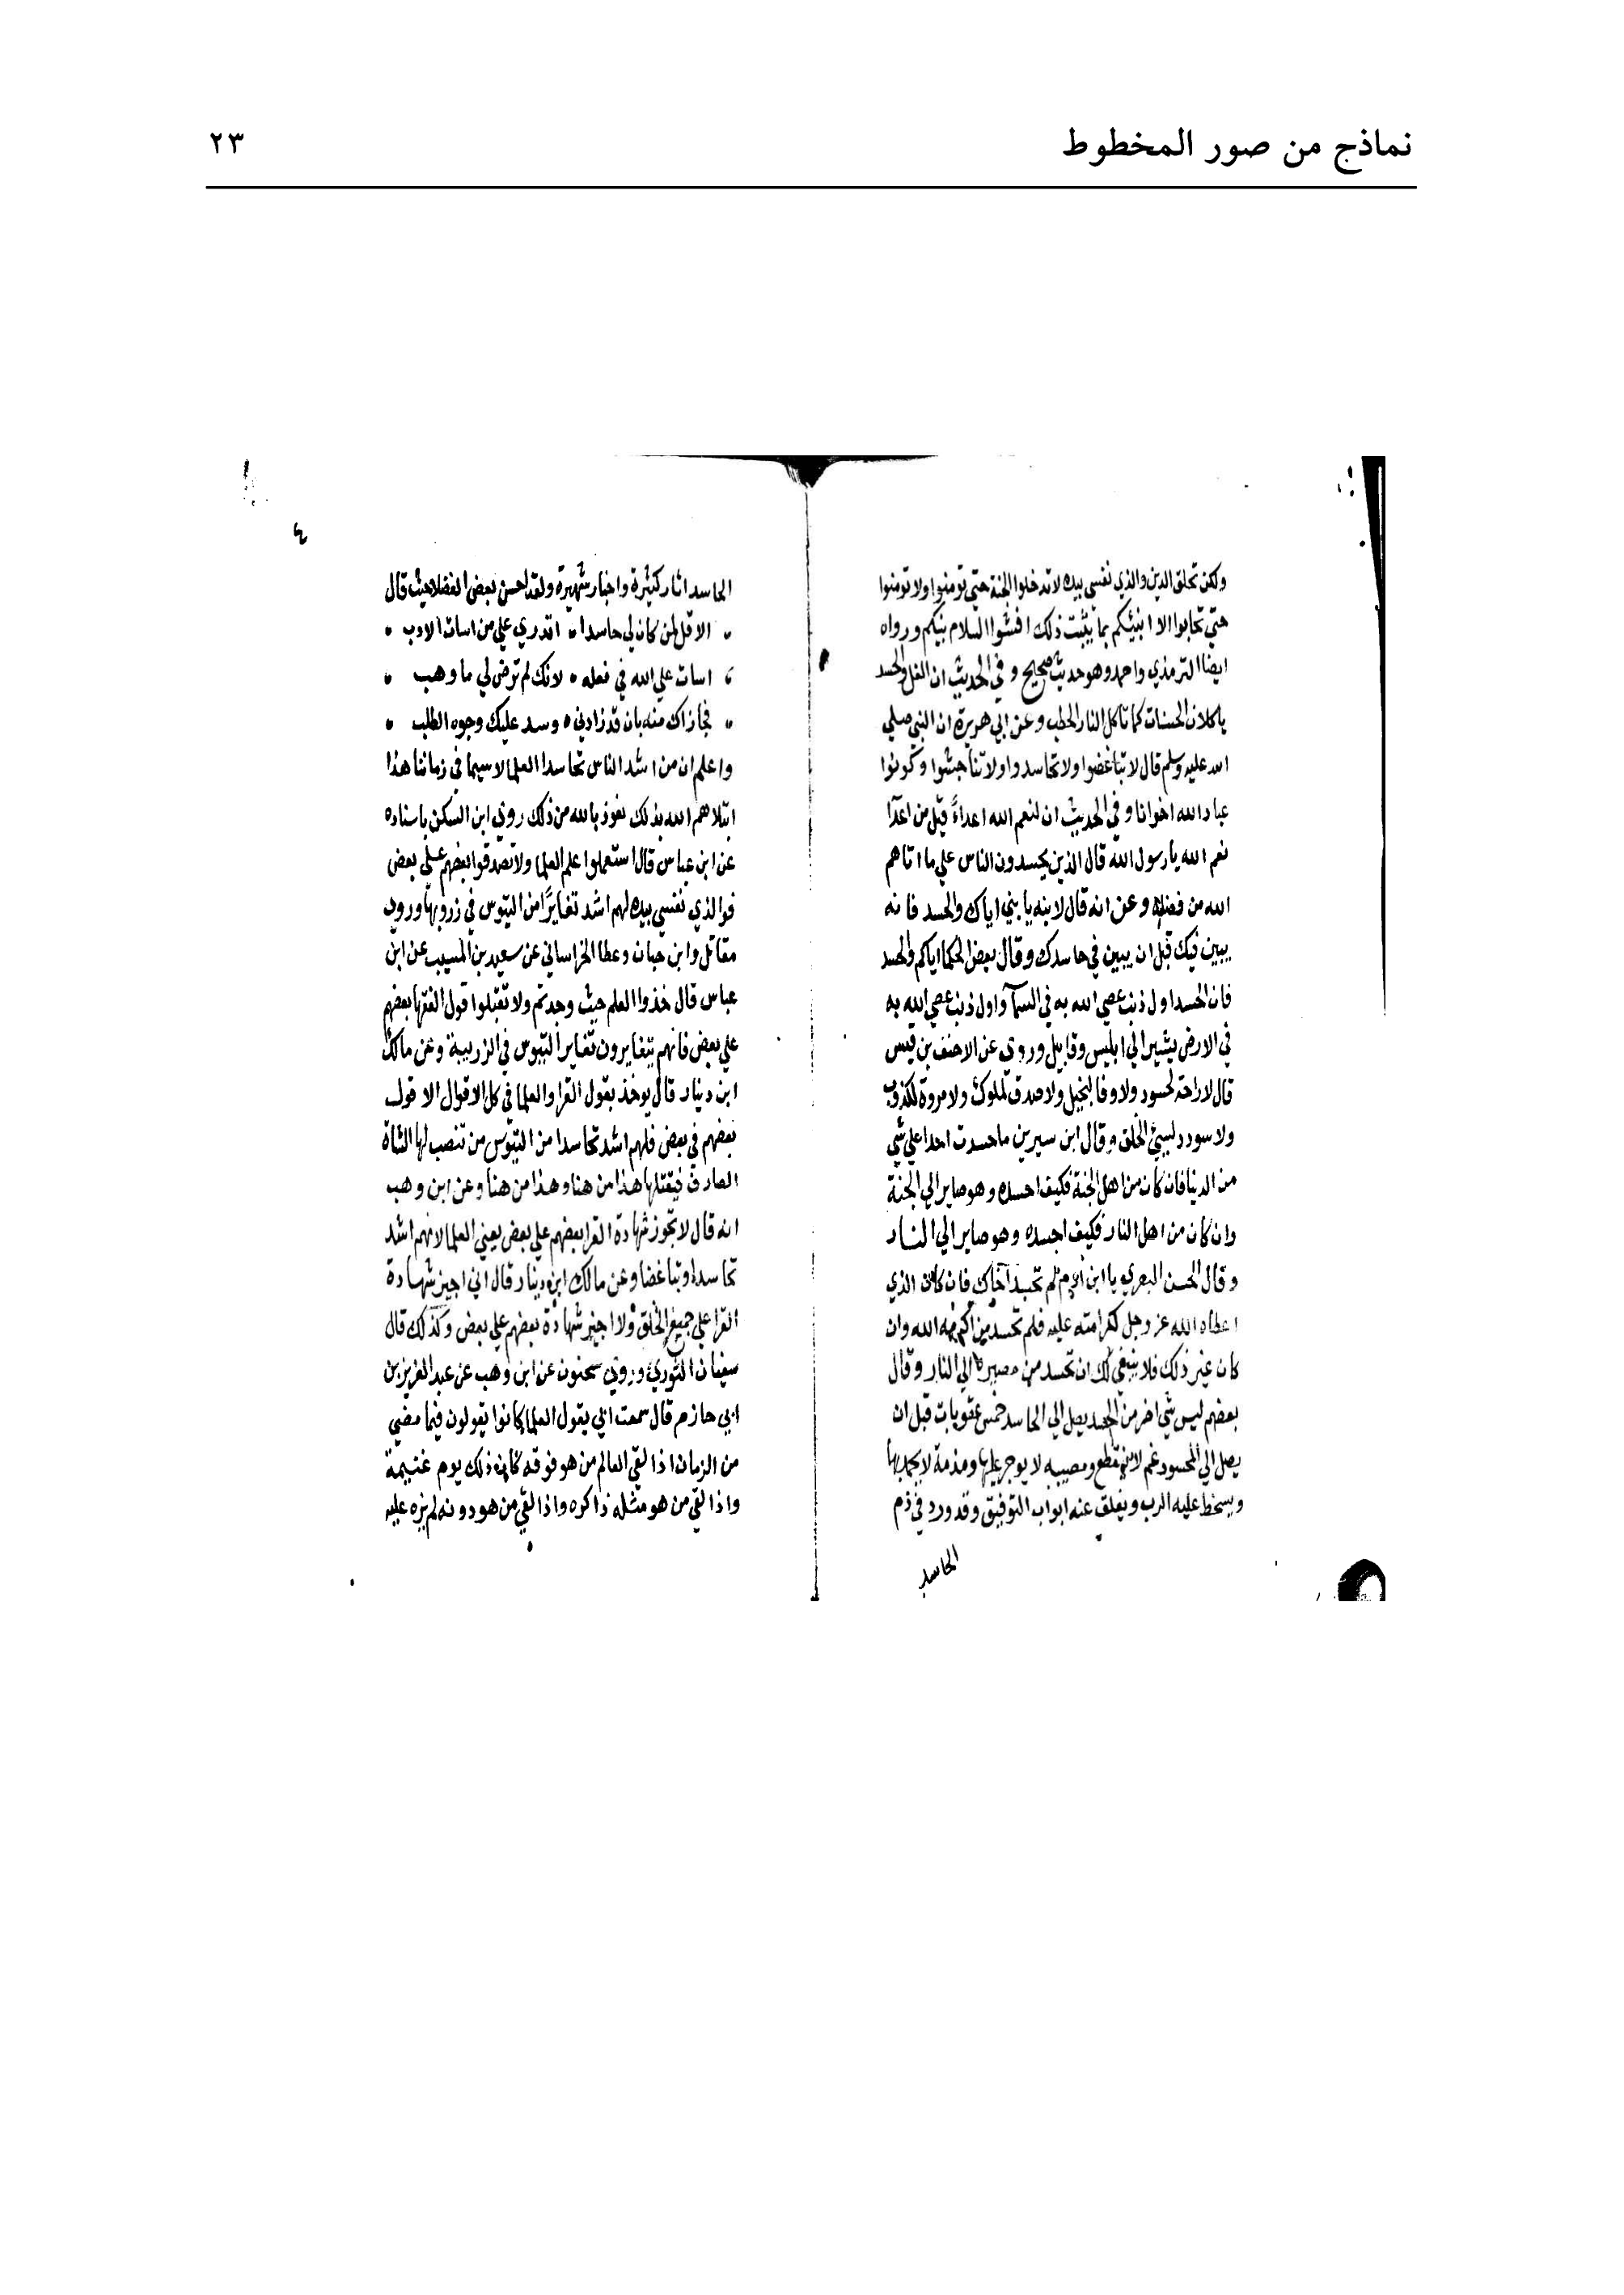 نماذج من صور المخطوط
٢٣
ولكن تحلق الدين والذي نفسي بيده لا تدخلوا الجنة حتي تومنوا ولا تومنوا
حتي تحابوا الا انبئكم بما يثبت ذلك افشوا السلام بينكم ورواه
ايضا الترمذي واحمد وهو حديث صحيح وفي الحديث ان الغل والحسد
ياكلان الحسنات كما تاكل النار الحطب وعن ابي هريرة ان النبي صلي
الله عليه وسلم قال لا تباغضوا ولا تحاسدوا ولا تناجشوا وكونوا
عباد الله اخوانا وفي الحديث ان لنعم الله اعداءً قيل من اعدآ
نعم الله يا رسول الله قال الذين يحسدون الناس علي ما اتاهم
الله من فضله وعن انه قال لابنه يا بني اياك والحسد فانه
يبين فيك قبل ان يبين في حاسدك وقال بعض الحكما اياكم والحسد
فان الحسد اول ذنب عصي الله به في السمآ واول ذنب عصي الله به
في الارض يشير الي ابليس وقابيل وروي عن الاحنف بن قيس
قال لا راحة لحسود ولا وفا لبخيل ولا صدق لملوك ولا مروة لكذوب
ولا سودد لسيئ الخلق وقال ابن سيرين ما حسدت احدا علي شي
من الدنيا فان كان من اهل الجنة فكيف احسده وهو صاير الي الجنة
وان كان من اهل النار فكيف احسده وهو صاير الي النار
وقال الحسن البصري يا ابن ادم لم تحسد اخاك فان كان الذي
اعطاه الله عز وجل لكرامته عليه فلم تحسد من اكرمه الله وان
كان غير ذلك فلا ينبغي لك ان تحسد من مصيره الي النار وقال
بعضهم ليس شي اضر من الحسد يصل الي الحاسد خمس عقوبات قبل ان
يصل الي المحسود غم لا ينقطع ومصيبه لا يوجر عليها ومذمة لا يحمد بها
ويسخط عليه الرب ويغلق عنه ابواب التوفيق وقد ورد في ذم
الحاسد
٤
الحاسد اثار كثيرة واخبار شهيرة ولقد احسن بعض الفضلا حيث قال
الا قل لمن كان لي حاسدا اتدري علي من اسات الادب
اسات علي الله في فعله لانك لم ترض لي ما وهب
فجازاك منه بان قد زادني وسد عليك وجوه الطلب
واعلم ان من اشد الناس تحاسدا العلما لا سيما في زماننا هذا
ابتلاهم الله بذلك نعوذ بالله من ذلك روي ابن السكن باسناده
عن ابن عباس قال استعملوا علم العلما ولا تصدقوا بعضهم علي بعض
فوالذي نفسي بيده لهم اشد تغايرًا من التيوس في زروبها وروي
مقاتل وابن حبان وعطا الخراساني عن سعيد بن المسيب عن ابن
عباس قال خذوا العلم حيث وجدتم ولا تقبلوا قول الفقها بعضهم
علي بعض فانهم يتغايرون تغاير التيوس في الزريبة وعن مالك
ابن دينار قال يوخذ بقول القرا والعلما في كل الاقوال الا قول
بعضهم في بعض فلهم اشد تحاسدا من التيوس من تنصب لها الشاة
هذا من هنا وهذا من هنا وعن ابن وهب
انه قال لا تجوز شهادة القرا بعضهم علي بعض يعني العلما لانهم اشد
تحاسدا وتباغضا وعن مالك ابن دينار قال اني اجيز شهادة
القرا علي جميع الخلق ولا اجيز شهادة بعضهم علي بعض وكذلك قال
سفيان الثوري وروي سحنون عن ابن وهب عن عبد العزيز بن
ابي حازم قال سمعت ابي يقول العلما كانوا يقولون فيما مضي
من الزمان اذا لقي العالم من هو فوقه كان ذلك يوم غنيمة
واذا لقي من هو مثله ذاكره واذا لقي من هو دونه لم يزه عليه